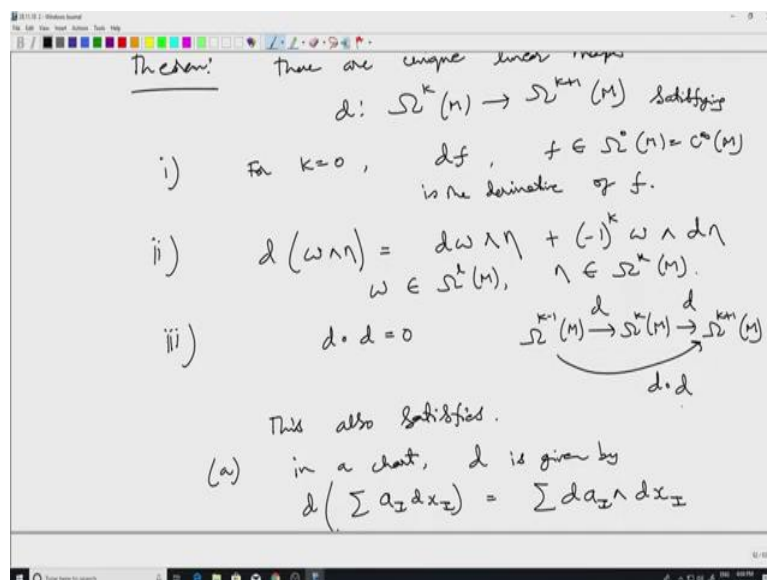 Theorem: there are unique linear maps
d: Ω^k (M) → Ω^{k+1} (M) satisfying
i) For k=0, df, f ∈ Ω^0 (M) = C^∞ (M)
is the derivative of f.
ii) d (ω∧η) = dω ∧η + (-1)^k ω ∧ dη
ω ∈ Ω^l (M), η ∈ Ω^k (M).
iii) d∘d = 0 Ω^{k-1} (M) →^d Ω^k (M) →^d Ω^{k+1} (M)
d∘d
This also satisfies.
(a) in a chart, d is given by
d ( Σ a_I dx_I ) = Σ da_I ∧ dx_I